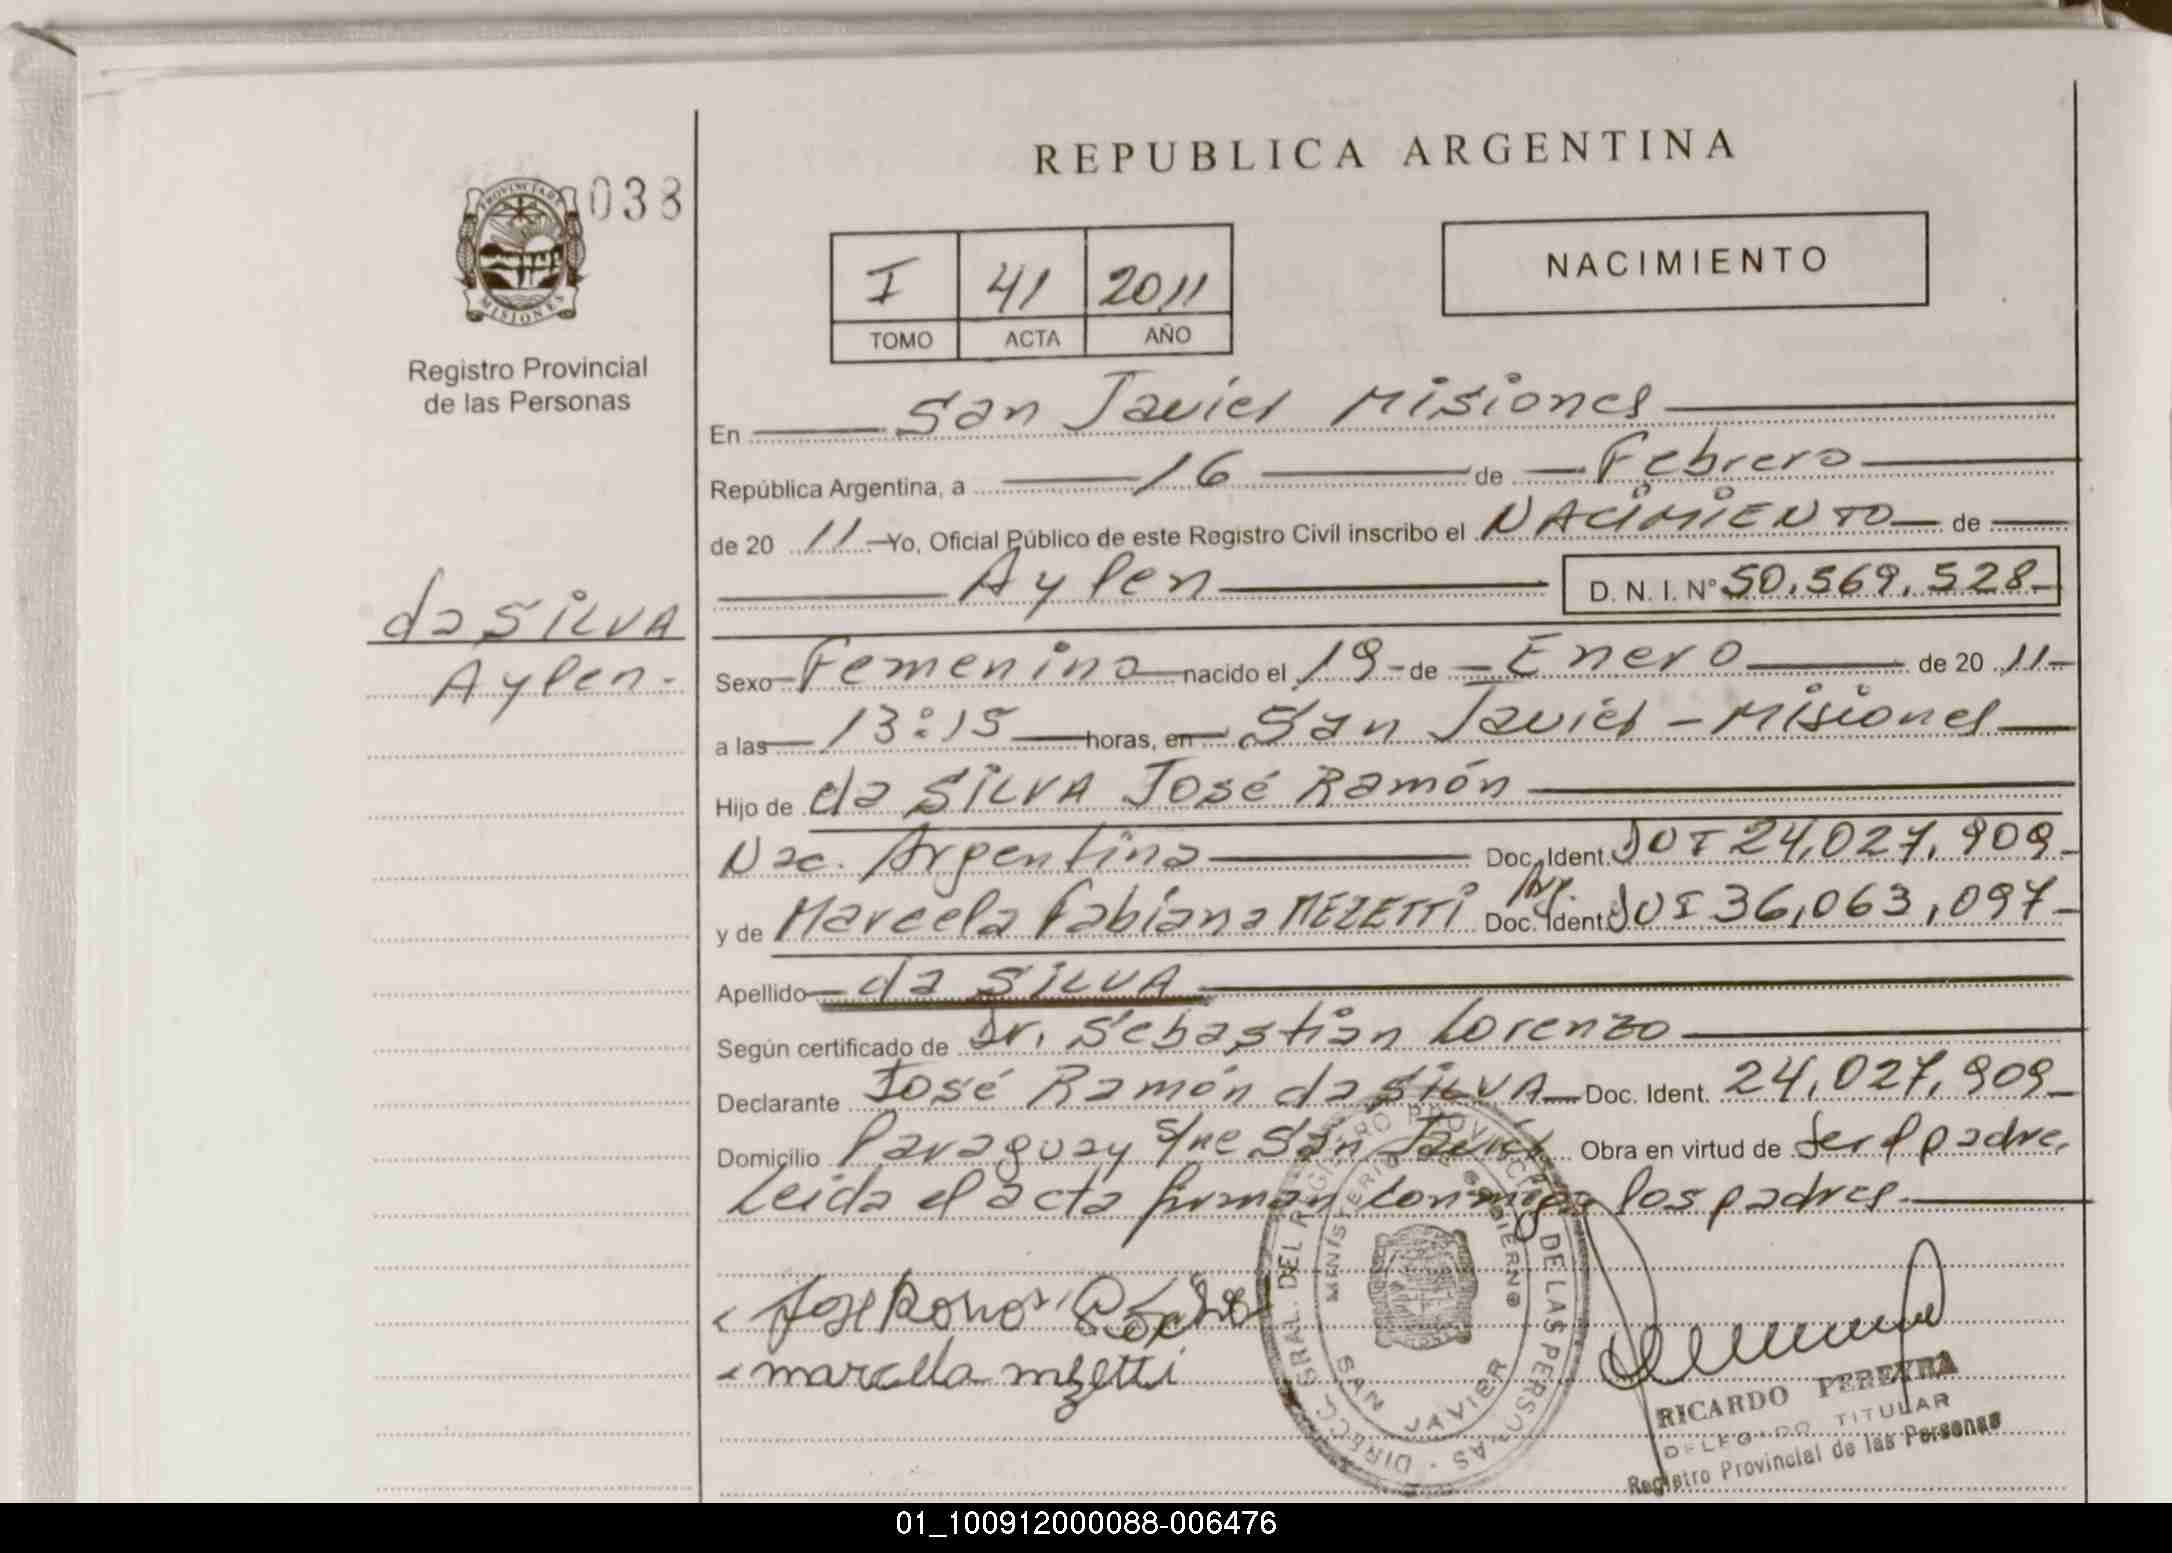 REPUBLICA ARGENTINA
038
PROVINCIA DE MISIONES
Registro Provincial
de las Personas
I 41 2011
TOMO ACTA AÑO
NACIMIENTO
En San Javier Misiones
República Argentina, a 16 de Febrero
de 20 11 Yo, Oficial Público de este Registro Civil inscribo el NACIMIENTO de
Aylen D. N. I. N° 50.569.528
da SILVA
Aylen.
Sexo Femenino nacido el 19 de Enero de 20 11
a las 13:15 horas, en San Javier - Misiones
Hijo de da SILVA José Ramón
Nac. Argentina Doc. Ident. DUI 24.027.909
y de Marcela Fabiana MEZETTI Arg. Doc. Ident. DUI 36.063.097
Apellido da SILVA
Según certificado de Dr. Sebastian Lorenzo
Declarante José Ramón da SILVA Doc. Ident. 24.027.909
Domicilio Paraguay s/ne San Javier Obra en virtud de ser el padre.
Leida el acta firman conmigo los padres.
marcela mezetti
DIRECC. GRAL. DEL REGISTRO PROVINCIAL DE LAS PERSONAS
MINISTERIO DE GOBIERNO
SAN JAVIER
RICARDO PEREYRA
DELEGADO TITULAR
Registro Provincial de las Personas
01_100912000088-006476